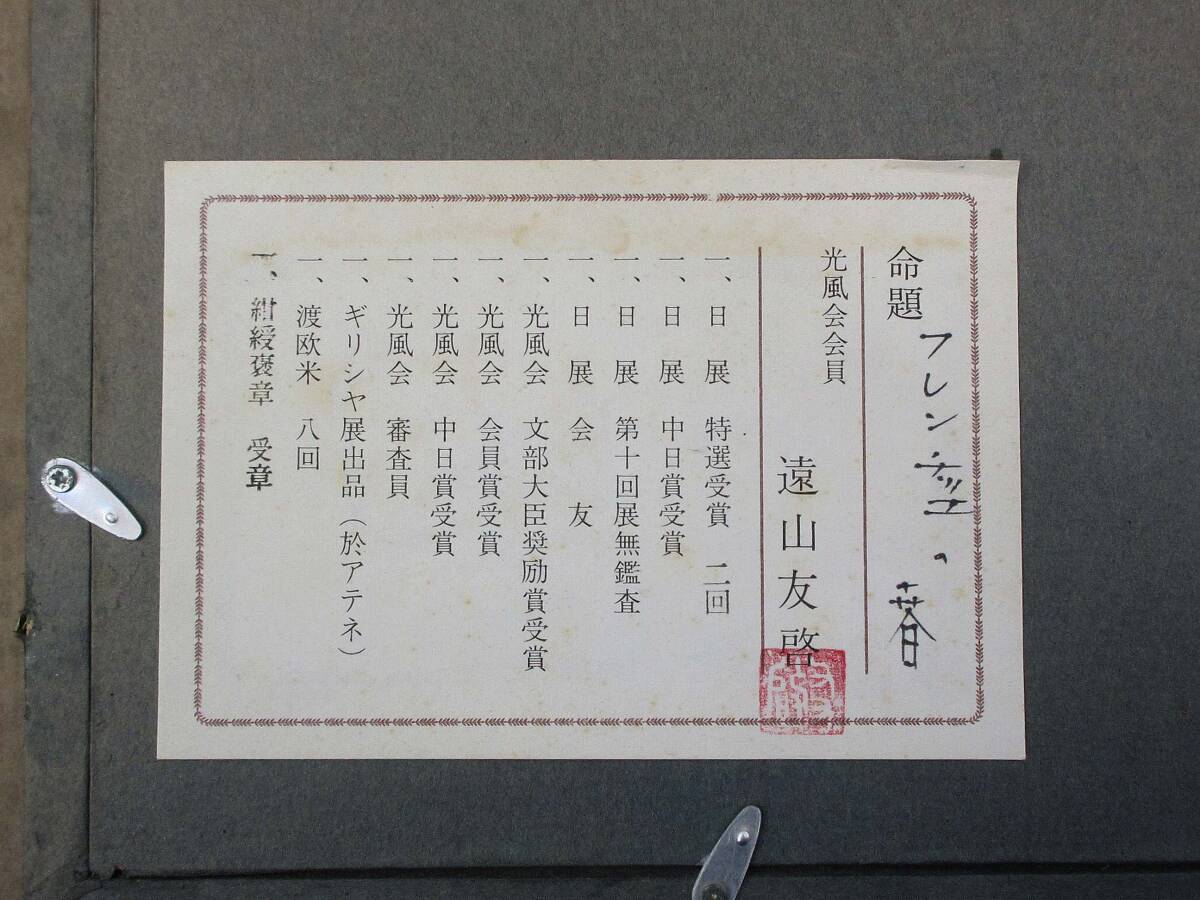 命題 フレン の
光風会会員
遠山友啓
一、日展 特選受賞 二回
一、日展 中日賞受賞
一、日展 第十回展無鑑査
一、日展会友
一、光風会 文部大臣奨励賞受賞
一、光風会 会員賞受賞
一、光風会 中日賞受賞
一、光風会 審査員
一、ギリシヤ展出品（於アテネ）
一、渡欧米 八回
一、紺綬褒章 受章